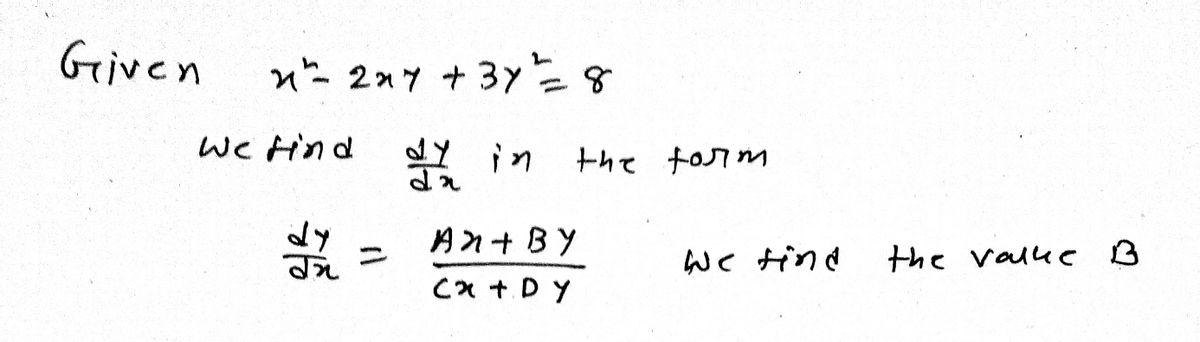 Given x² - 2xy + 3y² = 8
We find dy/dx in the form
dy/dx = Ax + By / Cx + Dy We find the value B